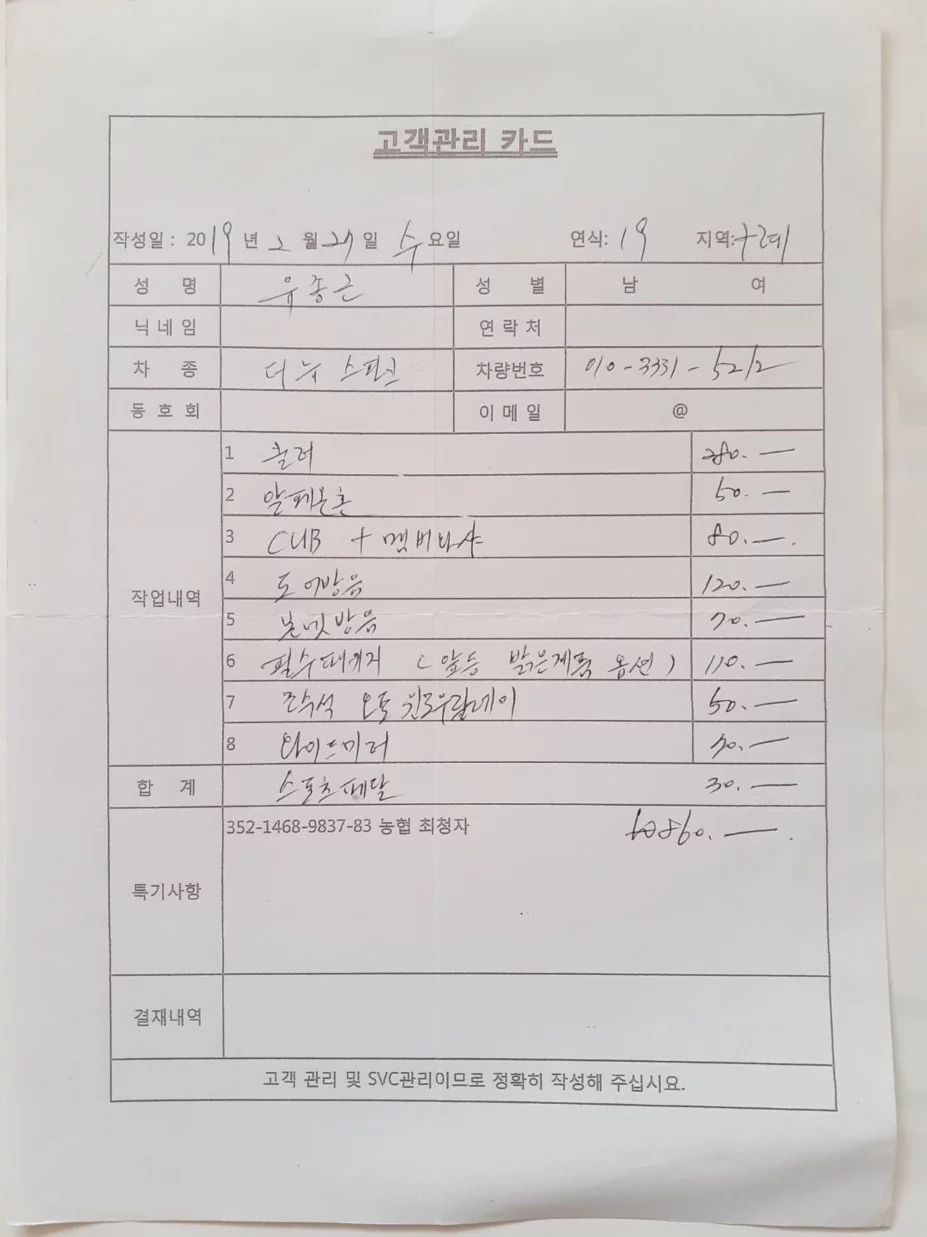 고객관리 카드
작성일 : 2019 년 2 월 27 일 수 요일 연식: 19 지역: 구례
성 명 유종근 성 별 남 여
닉 네 임 연 락 처
차 종 더뉴 스파크 차량번호 010-3331-5212
동 호 회 이 메 일 @
작업내역
1 280.—
2 알페온혼 50.—
3 + 멤버바샤 80.—.
4 도어방음 120.—
5 본넷방음 70.—
6 필수패키지 ( 앞등 밝은제품 옵션 ) 110.—
7 조수석 오토 윈도우릴레이 50.—
8 와이드미러 70.—
합 계 스포츠페달 30.—
352-1468-9837-83 농협 최청자 860.—.
특기사항
결재내역
고객 관리 및 SVC관리이므로 정확히 작성해 주십시요.